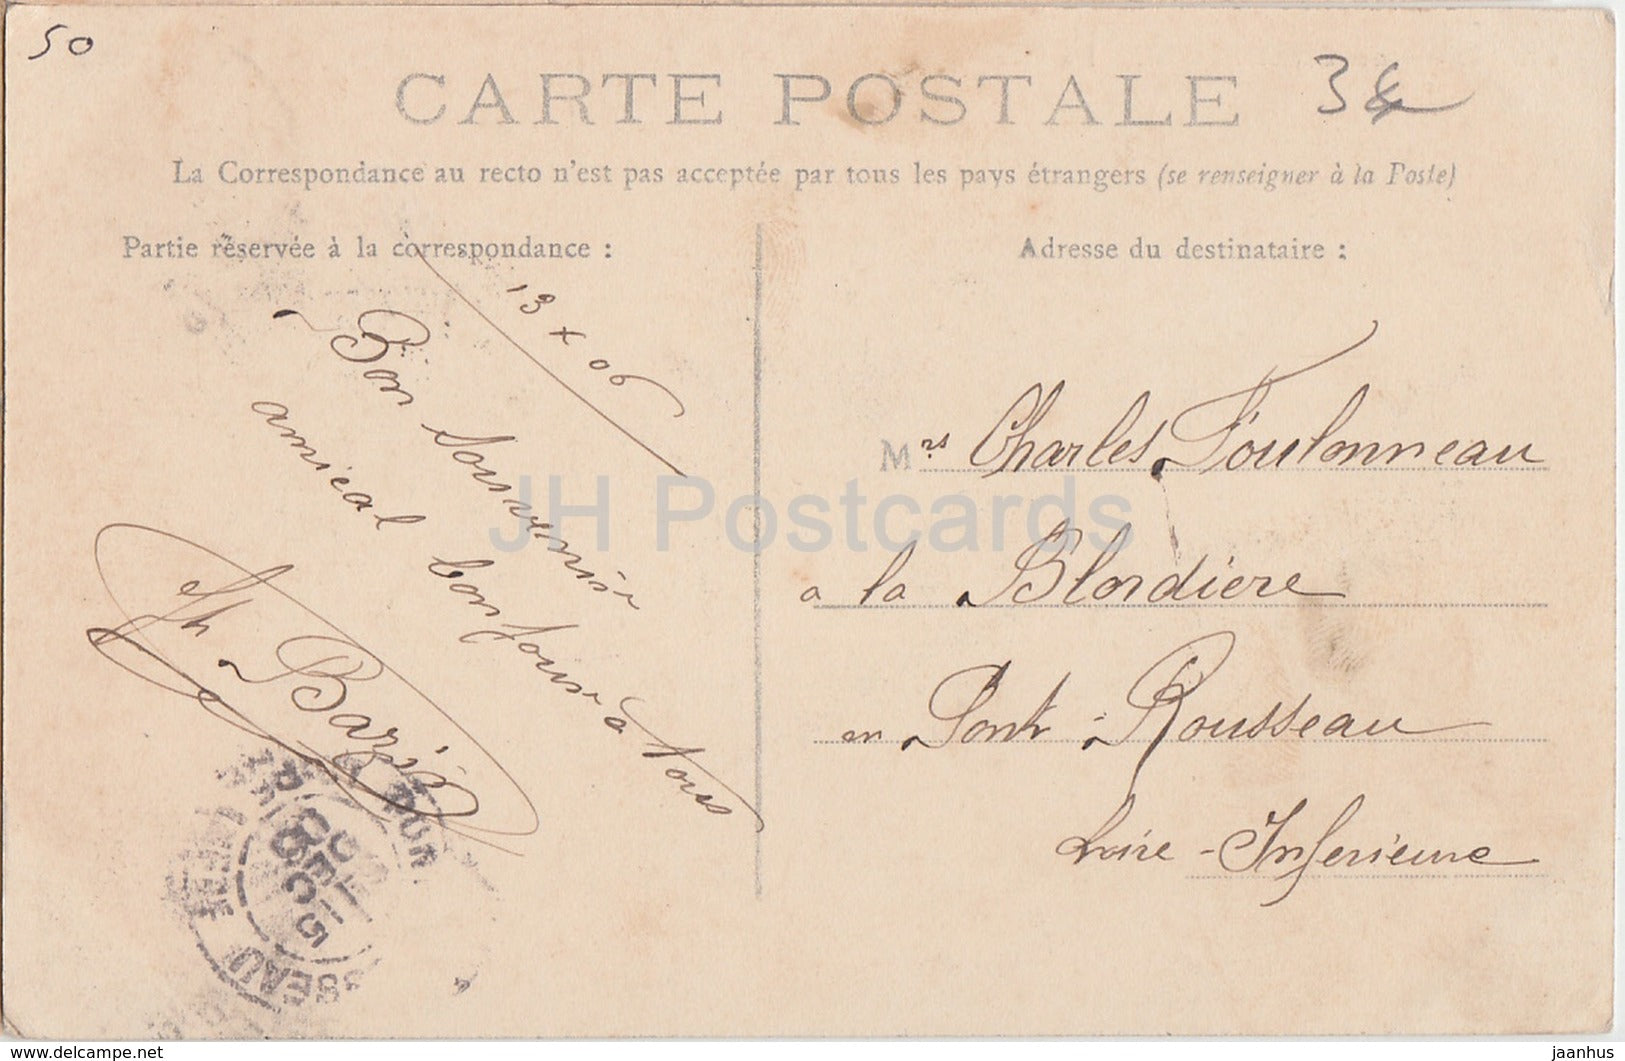 50
CARTE POSTALE
3€
La Correspondance au recto n'est pas acceptée par tous les pays étrangers (se renseigner à la Poste)
Partie réservée à la correspondance :
13 x 06
Bon Souvenir
amical bonjour à tous
Jh Bazié
Adresse du destinataire :
Mrs Charles Toulonneau
a la Blordiere
en Pont-Rousseau
Loire-Inferieure
JH Postcards
jaanhus
delcampe.net